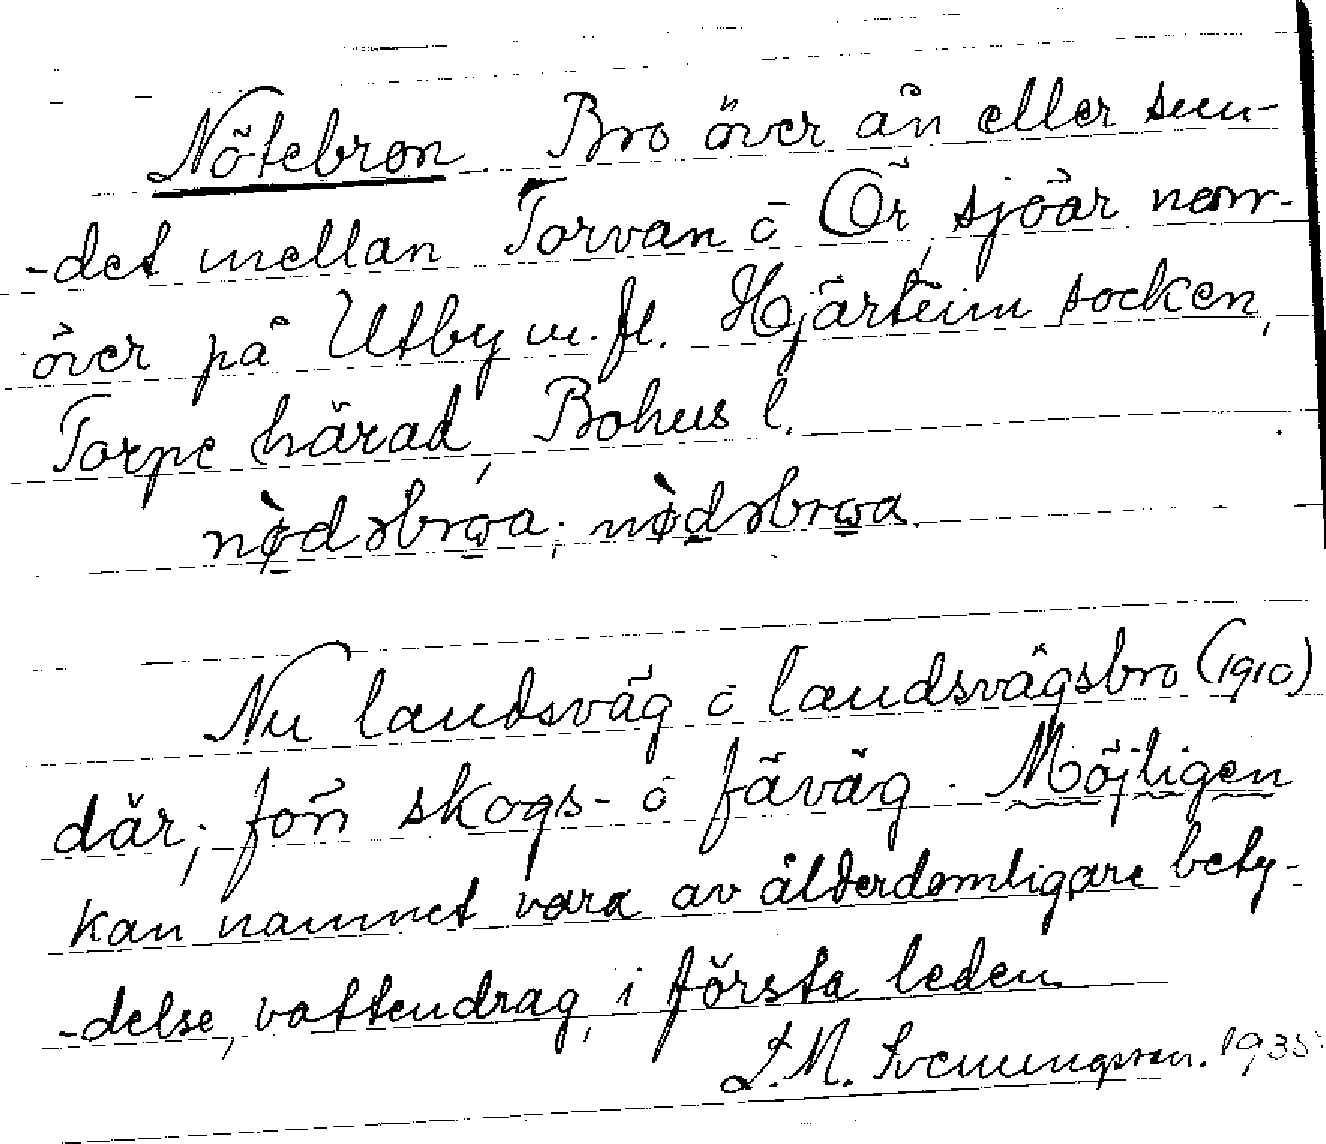 Nötebron Bro över ån eller sun-
-det mellan Torvan o Ör, sjöar norr-
över på Utby m.fl. Hjärteim socken,
Torpe härad, Bohus l.
nø̀dəbrωa; nø̀dəbrωa.
Nu landsväg o landsvägsbro (1910)
där; förr skogs- o fäväg. Möjligen
kan namnet vara av ålderdomligare bety-
-delse, vattendrag, i första leden.
L.M. Svenungsson. 1935.